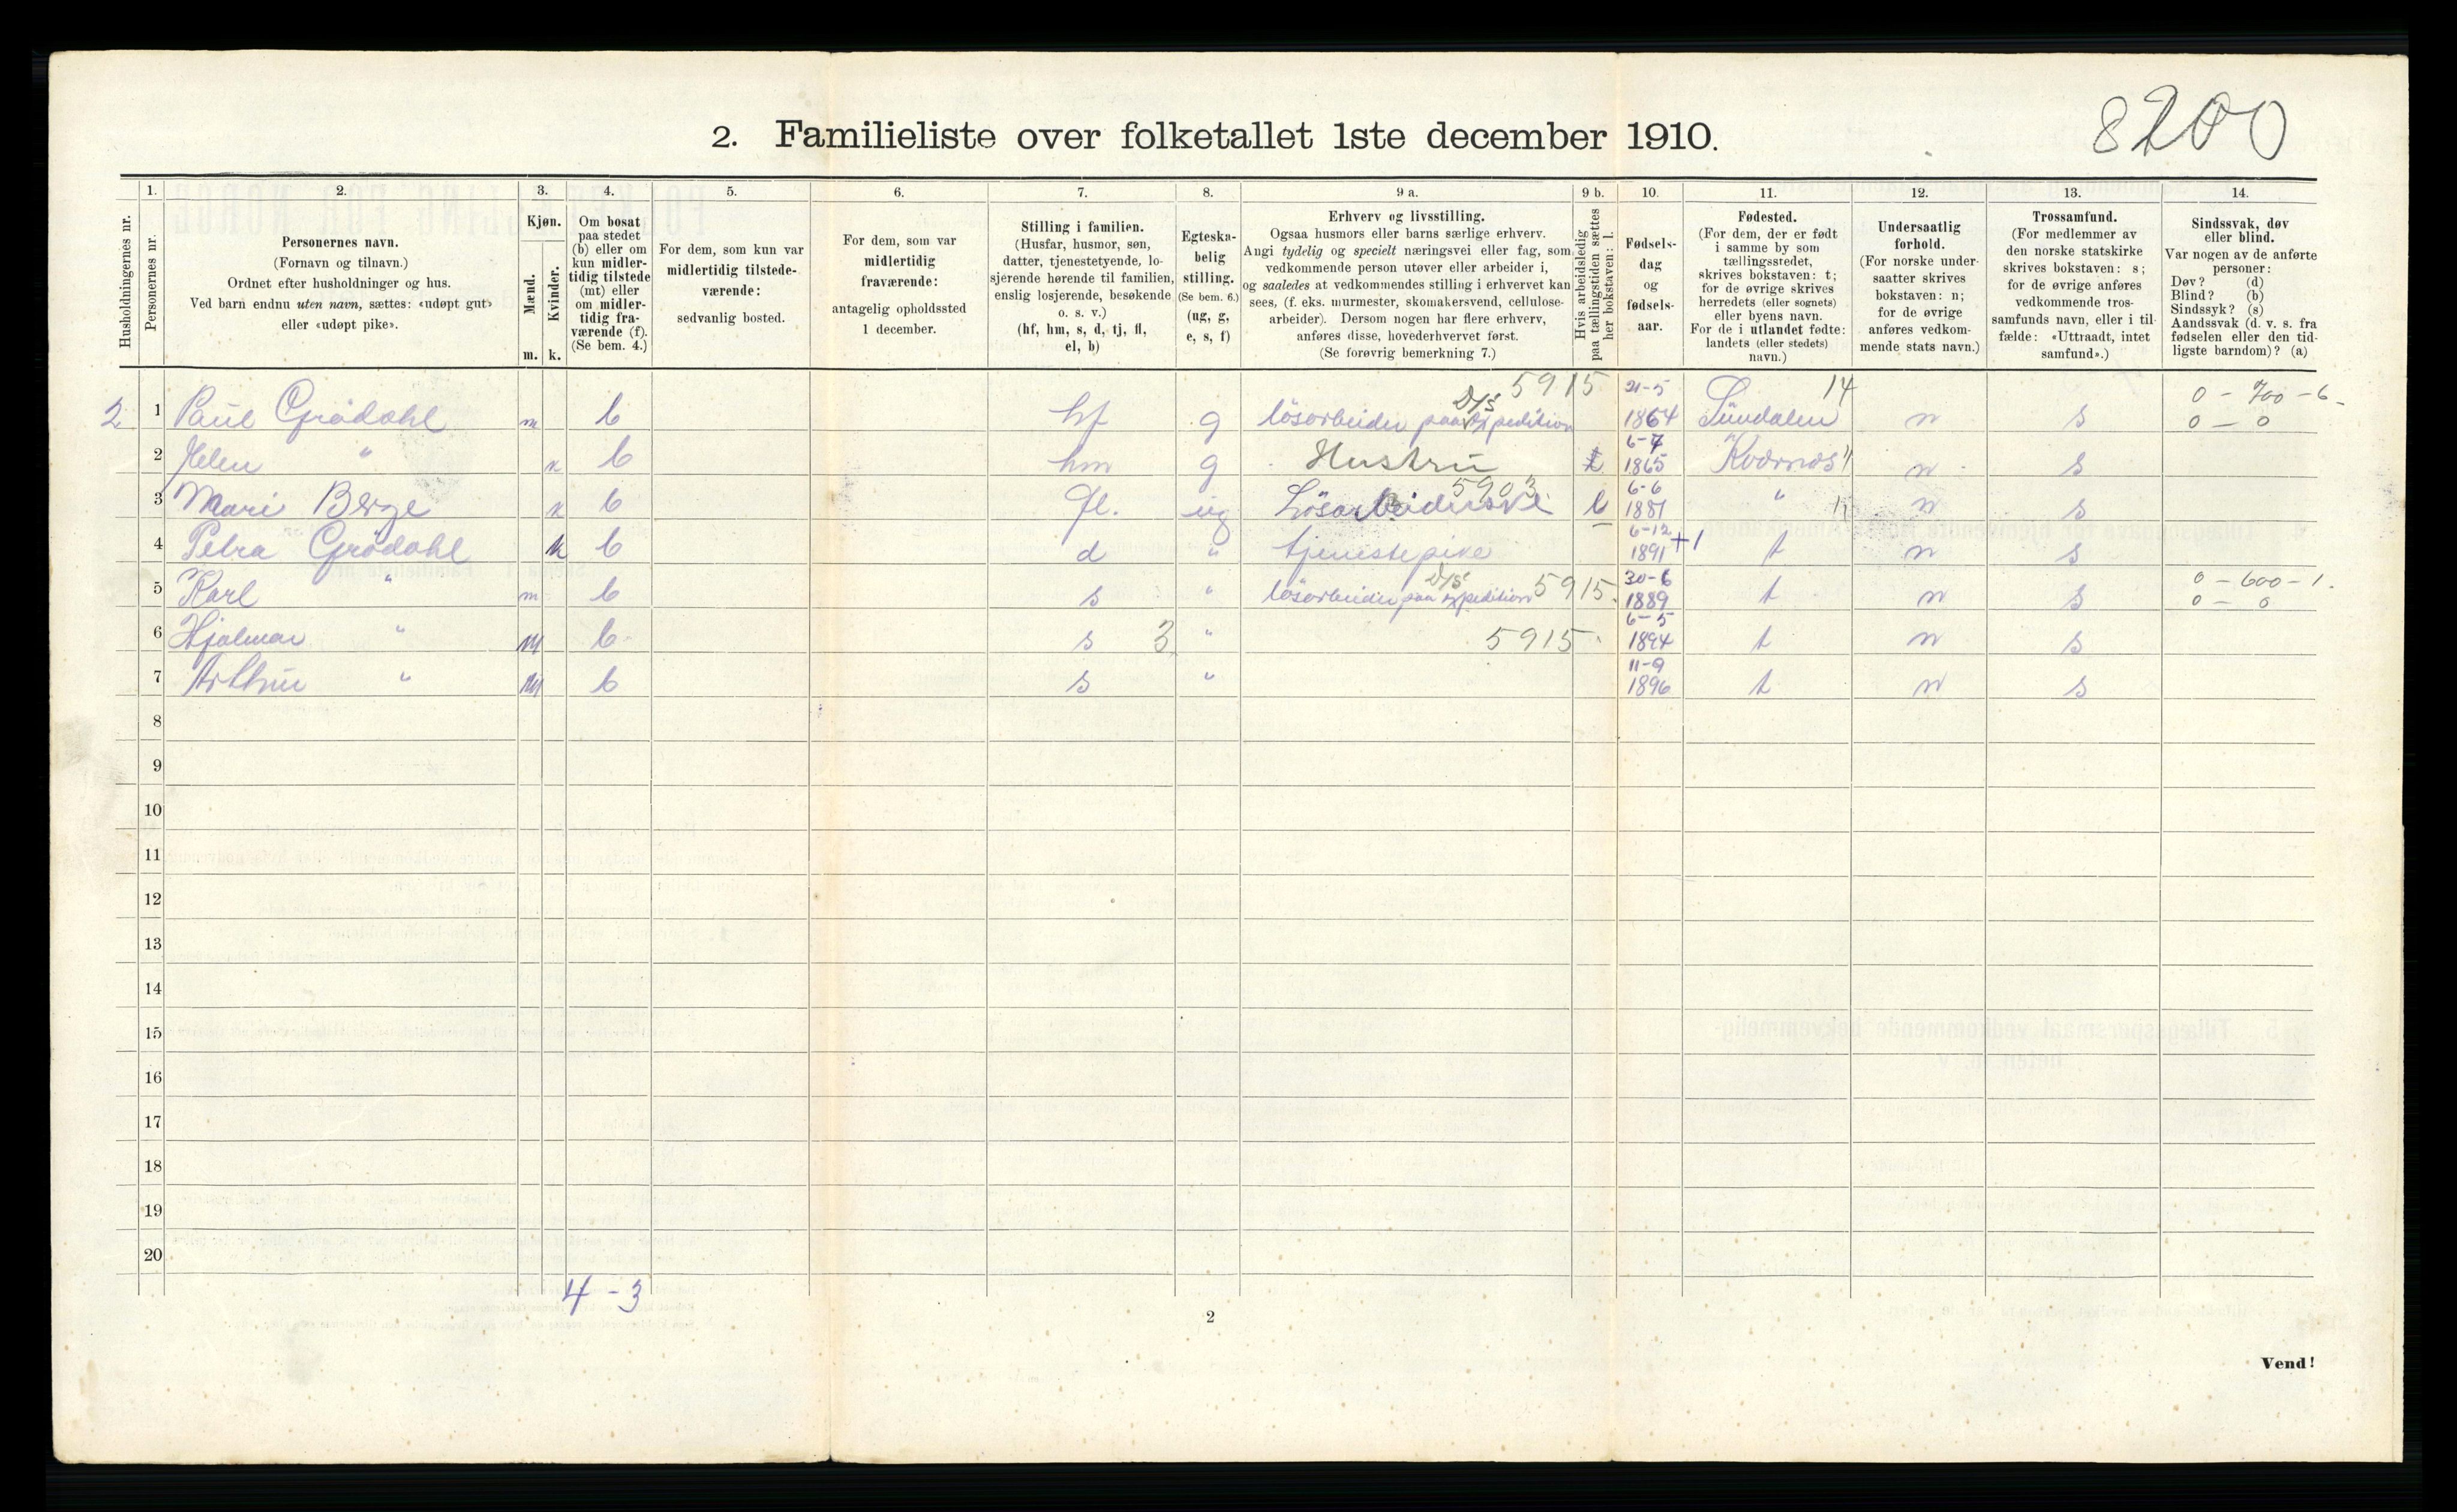 8200
2. Familieliste over folketallet 1ste december 1910.
Husholdningernes nr.
1. Personernes nr.
2. Personernes navn.
(Fornavn og tilnavn.)
Ordnet efter husholdninger og hus.
Ved barn endnu uten navn, sættes: «udøpt gut»
eller «udøpt pike».
3. Kjøn.
Mænd. m.
Kvinder. k.
4. Om bosat
paa stedet
(b) eller om
kun midler-
tidig tilstede
(mt) eller
om midler-
tidig fra-
værende (f).
(Se bem. 4.)
5. For dem, som kun var
midlertidig tilstede-
værende:
sedvanlig bosted.
6. For dem, som var
midlertidig
fraværende:
antagelig opholdssted
1 december.
7. Stilling i familien.
(Husfar, husmor, søn,
datter, tjenestetyende, lo-
sjerende hørende til familien,
enslig losjerende, besøkende
o. s. v.)
(hf, hm, s, d, tj, fl,
el, b)
8. Egteska-
belig
stilling.
(Se bem. 6.)
(ug, g,
e, s, f)
9 a. Erhverv og livsstilling.
Ogsaa husmors eller barns særlige erhverv.
Angi tydelig og specielt næringsvei eller fag, som
vedkommende person utøver eller arbeider i,
og saaledes at vedkommendes stilling i erhvervet kan
sees, (f. eks. murmester, skomakersvend, cellulose-
arbeider). Dersom nogen har flere erhverv,
anføres disse, hovederhvervet først.
(Se forøvrig bemerkning 7.)
9 b. Hvis arbeidsledig
paa tællingstiden sættes
her bokstaven: l.
10. Fødsels-
dag
og
fødsels-
aar.
11. Fødested.
(For dem, der er født
i samme by som
tællingsstedet,
skrives bokstaven: t;
for de øvrige skrives
herredets (eller sognets)
eller byens navn.
For de i utlandet fødte:
landets (eller stedets)
navn.)
12. Undersaatlig
forhold.
(For norske under-
saatter skrives
bokstaven: n;
for de øvrige
anføres vedkom-
mende stats navn.)
13. Trossamfund.
(For medlemmer av
den norske statskirke
skrives bokstaven: s;
for de øvrige anføres
vedkommende tros-
samfunds navn, eller i til-
fælde: «Uttraadt, intet
samfund».)
14. Sindssvak, døv
eller blind.
Var nogen av de anførte
personer:
Døv? (d)
Blind? (b)
Sindssyk? (s)
Aandssvak (d. v. s. fra
fødselen eller den tid-
ligste barndom)? (a)
5915 21-5 14 0 - 700 - 6
2 1 Paul Grödahl m b hf g lösarbeider paa D/S expedition 1864 Sündalen n s 0 - 0
2 Helen " k b hm g Hustru 6-7 1865 Kvernes n s
5903
3 Mari Berge k b fl. ug Lösarbeiderske l 6-6 1881 " n s
4 Petra Grödahl k b d " tjenestepike 6-12 1891 +1 t n s
5 Karl " m b s " lösarbeider paa D/S expedition 5915 30-6 1889 t n s 0 - 600 - 1. 0 - 0
6 Hjalmar " m b s 3 " 5915 6-5 1894 t n s
7 Arthur " m b s " 11-9 1896 t n s
8
9
10
11
12
13
14
15
16
17
18
19
20
4 - 3
2
Vend!